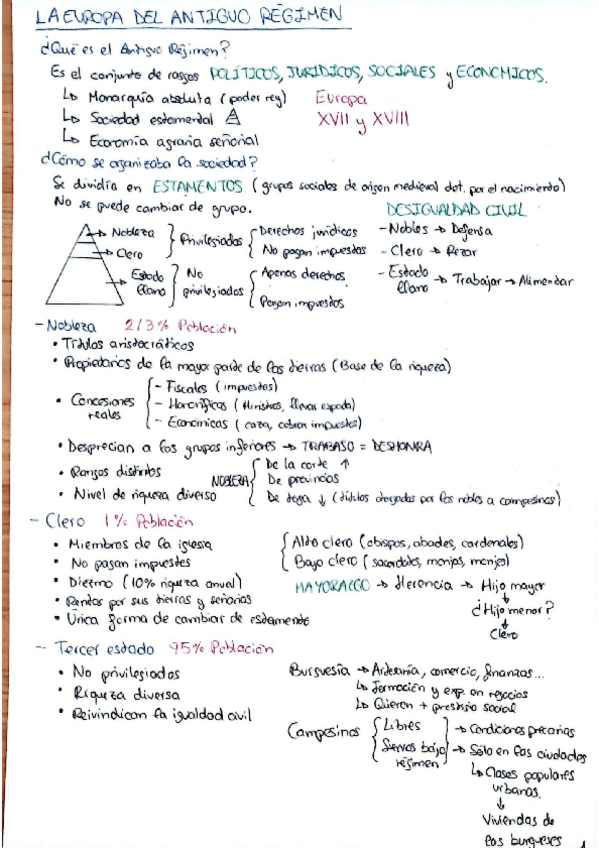 LA EUROPA DEL ANTIGUO RÉGIMEN
¿Qué es el Antiguo Régimen?
Es el conjunto de rasgos POLÍTICOS, JURÍDICOS, SOCIALES y ECONÓMICOS.
↳ Monarquía absoluta (poder rey)
↳ Sociedad estamental
↳ Economía agraria señorial
Europa
XVII y XVIII
¿Cómo se organizaba la sociedad?
Se dividía en ESTAMENTOS (grupos sociales de origen medieval det. por el nacimiento)
No se puede cambiar de grupo.
DESIGUALDAD CIVIL
→ Nobleza
→ Clero
} Privilegiados { Derechos jurídicos
No pagan impuestos
→ Estado llano } No privilegiados { Apenas derechos
Pagan impuestos
- Nobles → Defensa
- Clero → Rezar
- Estado llano → Trabajar → Alimentar
- Nobleza 2/3% Población
• Títulos aristocráticos
• Propietarios de la mayor parte de las tierras (Base de la riqueza)
• Concesiones reales
- Fiscales (impuestos)
- Honoríficas (Ministros, llevar espada)
- Económicas (caza, cobran impuestos)
• Desprecian a los grupos inferiores → TRABAJO = DESHONRA
• Rangos distintos
• Nivel de riqueza diverso
NOBLEZA { De la corte ↑
De provincias
De toga ↓ (títulos otorgados por los nobles a campesinos)
- Clero 1% Población
• Miembros de la iglesia
• No pagan impuestos
• Diezmo (10% riqueza anual)
• Rentas por sus tierras y señoríos
• Única forma de cambiar de estamento
{ Alto clero (obispos, abades, cardenales)
Bajo clero (sacerdotes, monjas, monjes)
MAYORAZGO → Herencia → Hijo mayor
↓
¿Hijo menor?
↓
Clero
- Tercer estado 95% Población
• No privilegiados
• Riqueza diversa
• Reivindican la igualdad civil
Burguesía → Artesanía, comercio, finanzas...
↳ Formación y exp. en negocios
↳ Quieren + prestigio social
Campesinos { Libres → Condiciones precarias
Siervos bajo régimen → Sólo en las ciudades
↳ Clases populares urbanas.
↓
Viviendas de
los burgueses